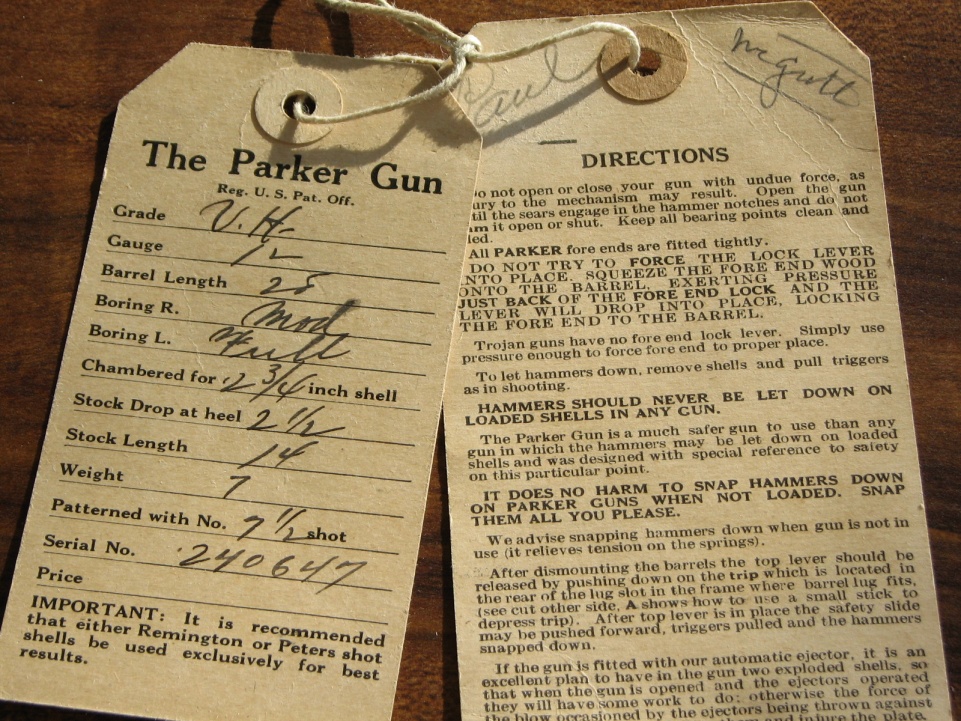 The Parker Gun
Reg. U. S. Pat. Off.
Grade V. H-
Gauge 12
Barrel Length 28
Boring R. Mod
Boring L. Full
Chambered for 2 3/4 inch shell
Stock Drop at heel 2 1/2
Stock Length 14
Weight 7
Patterned with No. 7 1/2 shot
Serial No. 240647
Price
IMPORTANT: It is recommended
that either Remington or Peters shot
shells be used exclusively for best
results.
Paul
DIRECTIONS
o not open or close your gun with undue force, as
ury to the mechanism may result. Open the gun
til the sears engage in the hammer notches and do not
am it open or shut. Keep all bearing points clean and
led.
All PARKER fore ends are fitted tightly.
DO NOT TRY TO FORCE THE LOCK LEVER
NTO PLACE. SQUEEZE THE FORE END WOOD
ONTO THE BARREL, EXERTING PRESSURE
JUST BACK OF THE FORE END LOCK AND THE
LEVER WILL DROP INTO PLACE, LOCKING
THE FORE END TO THE BARREL.
Trojan guns have no fore end lock lever. Simply use
pressure enough to force fore end to proper place.
To let hammers down, remove shells and pull triggers
as in shooting.
HAMMERS SHOULD NEVER BE LET DOWN ON
LOADED SHELLS IN ANY GUN.
The Parker Gun is a much safer gun to use than any
gun in which the hammers may be let down on loaded
shells and was designed with special reference to safety
on this particular point.
IT DOES NO HARM TO SNAP HAMMERS DOWN
ON PARKER GUNS WHEN NOT LOADED. SNAP
THEM ALL YOU PLEASE.
We advise snapping hammers down when gun is not in
use (it relieves tension on the springs).
After dismounting the barrels the top lever should be
released by pushing down on the trip which is located in
the rear of the lug slot in the frame where barrel lug fits,
(see cut other side, A shows how to use a small stick to
depress trip). After top lever is in place the safety slide
may be pushed forward, triggers pulled and the hammers
snapped down.
If the gun is fitted with our automatic ejector, it is an
excellent plan to have in the gun two exploded shells, so
that when the gun is opened and the ejectors operated
they will have some work to do; otherwise the force of
the blow occasioned by the ejectors being thrown against